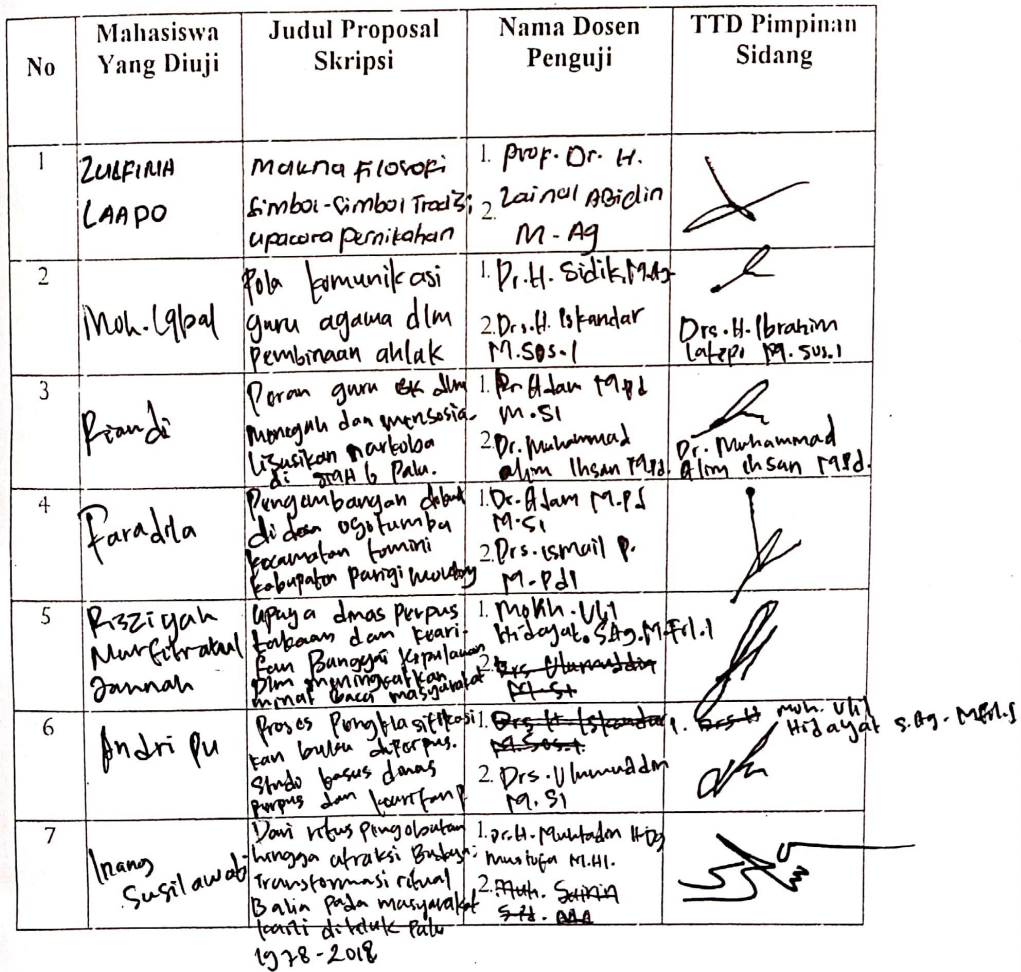 No
Mahasiswa
Yang Diuji
Judul Proposal
Skripsi
Nama Dosen
Penguji
TTD Pimpinan
Sidang
1
ZULFIRIA
LAAPO
Makna Filosofi
Simbol-Simbol Tradisi
upacara pernikahan
1. Prof. Dr. H.
2. Zainal Abidin
M-Ag
2
Moh. Iqbal
Pola komunikasi
guru agama dlm
Pembinaan ahlak
1. Dr. H. Sidik, M.Ag
2. Drs. H. Iskandar
M.Sos.I
Drs. H. Ibrahim
Latepo M.Sos.I
3
Riandi
Peran guru BK dlm
Mencegah dan mensosia-
lisasikan narkoba
di 6 Palu.
1. Dr Adam M.Pd
M.SI
2. Dr. Muhammad
alim Ihsan M.Pd.
Dr. Muhammad
Alim ihsan M.Pd.
4
Faradila
Pengembangan
di desa ogotumbu
kecamatan tomini
kabupaten parigi moutong
1. Dr. Adam M.Pd
M.SI
2. Drs. Ismail P.
M-PdI
5
Risziyah
Nurfitratul
Jannah
upaya dinas perpus
takaan dan keari-
fan Banggai kepulauan
Dlm meningkatkan
minat baca masyarakat
1. Mokh. Ulil
Hidayat. SAg. M.Fil.I
2. Drs Ulumuddin
M.SI
6
Andri Pu
Proses Pengklasifikasi
kan buku diPerpus.
Studi kasus dinas
perpus dan kearifan P
1. Drs H Iskandar
M.Sos.I
1. Drs H Moh. Ulil
Hidayat S.Ag. M.Fil.I
2. Drs. Ulumuddin
M.SI
7
Inang
Susilawati
Dari ritus pengobatan
hingga atraksi Budaya:
Transformasi ritual
Balia Pada masyarakat
kaili diteluk Palu
1978-2018
1. Dr. H. Muhtadin
Mustofa M.HI.
2. Muh.